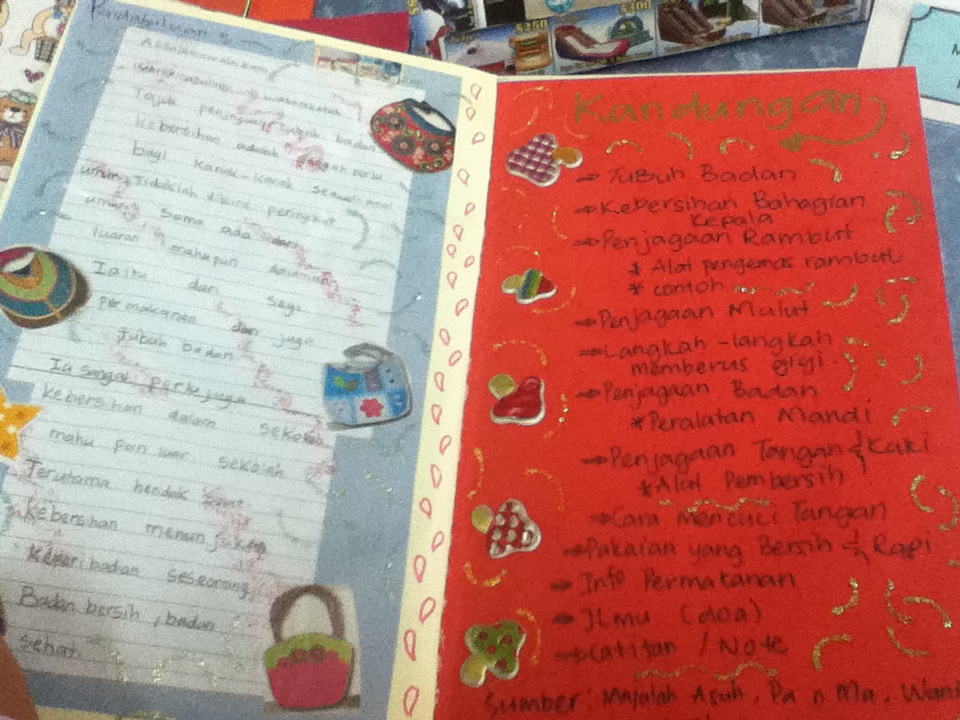 Assalamualaikum
warahmatullahi wabarakatuh
Tajuk tubuh badan
Kebersihan adalah sangat perlu
bagi kanak-kanak
umur. Tidaklah dikira peringkat
umur sama ada dari
luaran mahupun dalaman
Iaitu dari segi
Permakanan dan juga
tubuh badan
Ia sangat perlu juga
kebersihan dalam sekolah
mahu pun luar sekolah
Terutama hendak
kebersihan menunjukkan
keperibadian seseorang
Badan bersih, badan
sehat.
Kandungan
→ Tubuh Badan
→ Kebersihan Bahagian
kepala
→ Penjagaan Rambut
* Alat pengemas rambut
* contoh
→ Penjagaan Mulut
→ Langkah-langkah
memberus gigi.
→ Penjagaan Badan
* Peralatan Mandi
→ Penjagaan Tangan & Kaki
* Alat Pembersih
→ Cara mencuci Tangan
→ Pakaian yang Bersih & Rapi
→ Info Permakanan
→ Ilmu (doa)
→ Catitan / Note
Sumber: Majalah Asuh, Pa n Ma,
$250
$300